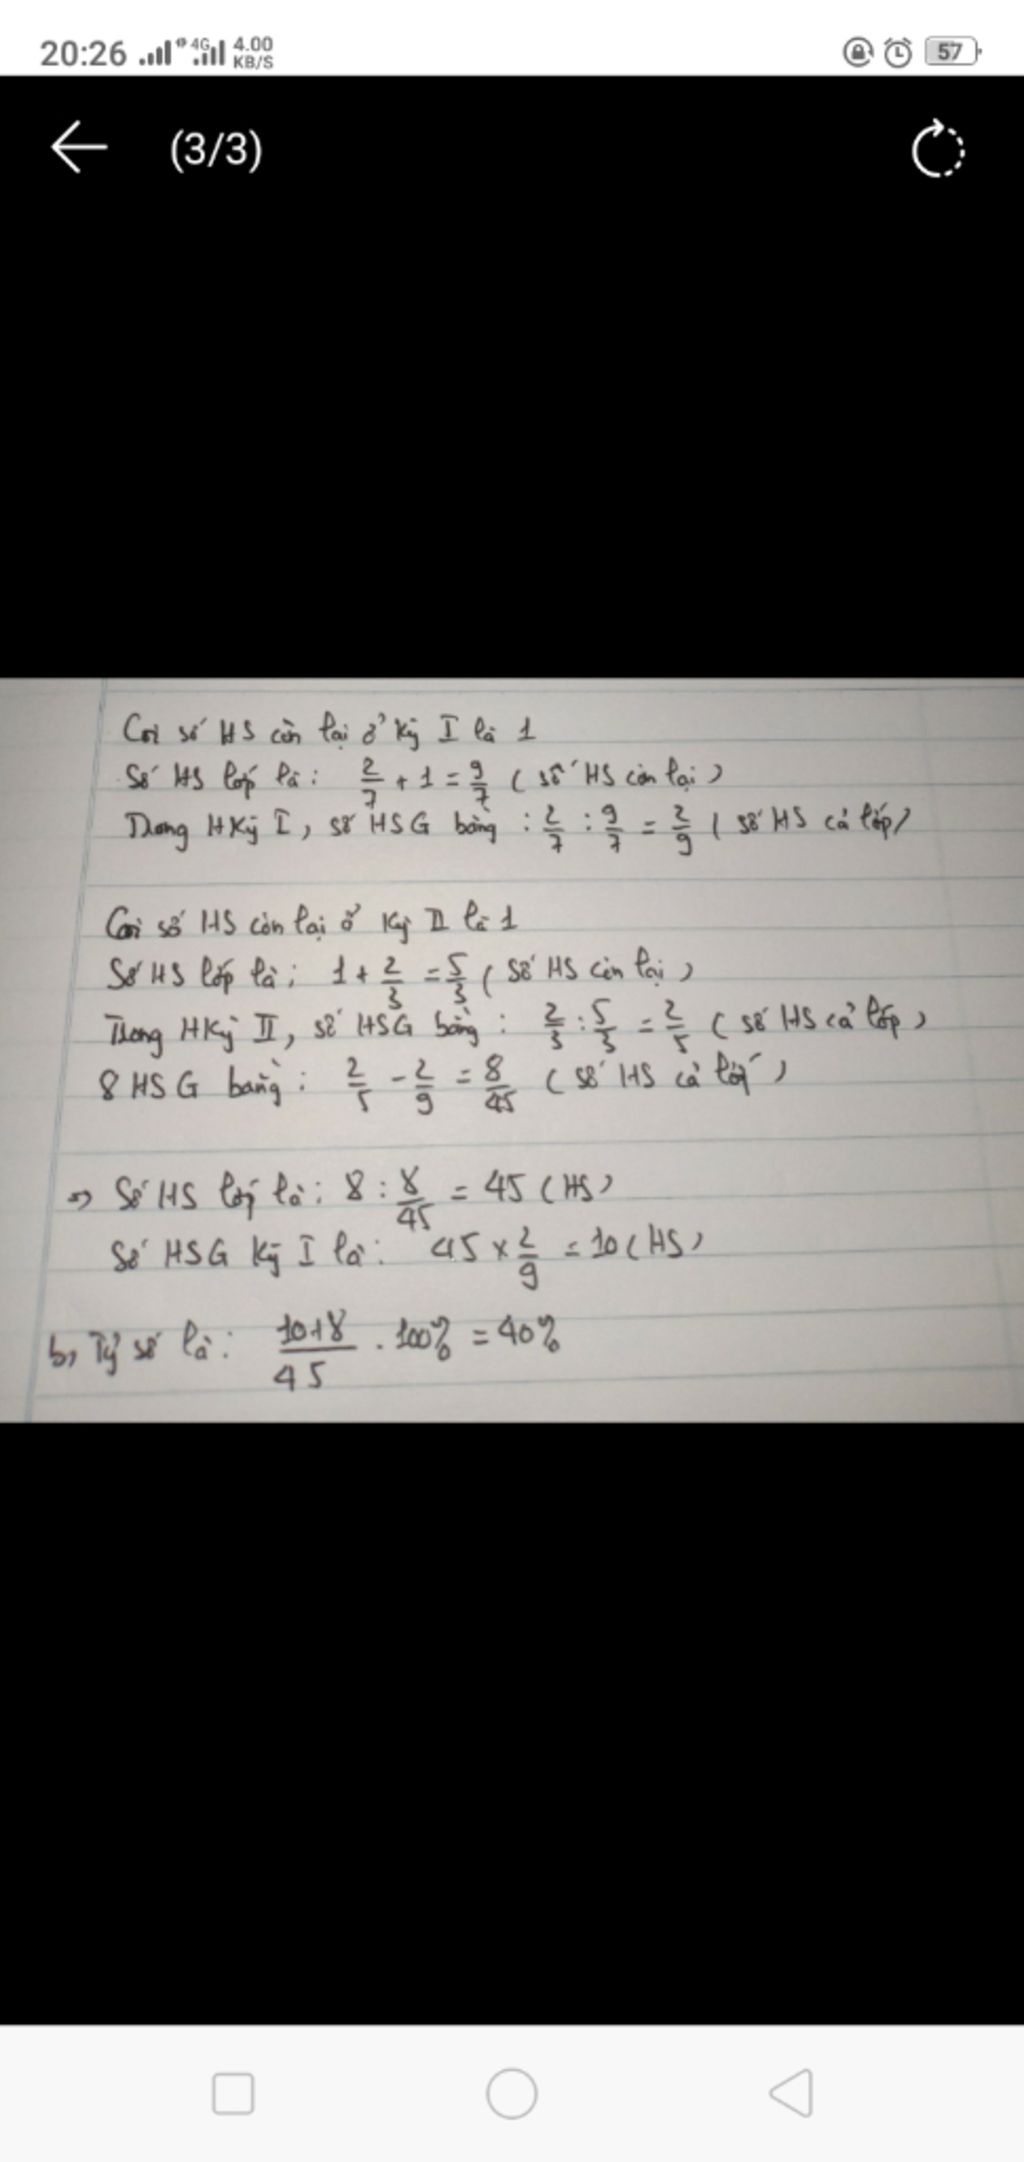 20:26 4G 4.00 KB/S 57
(3/3)
Coi số HS còn lại ở kỳ I là 1
Số HS lớp là: 2/7 + 1 = 9/7 (số HS còn lại)
Trong HKỳ I, số HSG bằng: 2/7 : 9/7 = 2/9 (số HS cả lớp)
Coi số HS còn lại ở kỳ II là 1
Số HS lớp là: 1 + 2/3 = 5/3 (số HS còn lại)
Trong HKỳ II, số HSG bằng: 2/3 : 5/3 = 2/5 (số HS cả lớp)
8 HSG bằng: 2/5 - 2/9 = 8/45 (số HS cả lớp)
=> Số HS lớp là: 8 : 8/45 = 45 (HS)
Số HSG kỳ I là: 45 x 2/9 = 10 (HS)
b, Tỷ số là: 10+8/45 . 100% = 40%